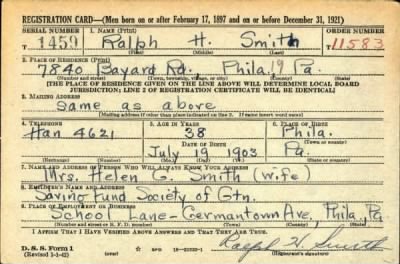 REGISTRATION CARD—(Men born on or after February 17, 1897 and on or before December 31, 1921)
SERIAL NUMBER 1. NAME (Print) ORDER NUMBER
T 1459 Ralph H. Smith 11583
(First) (Middle) (Last)
2. PLACE OF RESIDENCE (Print)
7840 Bayard Rd. Phila. 19 Pa.
(Number and street) (Town, township, village, or city) (County) (State)
[THE PLACE OF RESIDENCE GIVEN ON THE LINE ABOVE WILL DETERMINE LOCAL BOARD
JURISDICTION; LINE 2 OF REGISTRATION CERTIFICATE WILL BE IDENTICAL]
3. MAILING ADDRESS
same as above
[Mailing address if other than place indicated on line 2. If same insert word same]
4. TELEPHONE 5. AGE IN YEARS 6. PLACE OF BIRTH
Han 4621 38 Phila.
DATE OF BIRTH (Town or county)
July 19 1903 Pa.
(Exchange) (Number) (Mo.) (Day) (Yr.) (State or country)
7. NAME AND ADDRESS OF PERSON WHO WILL ALWAYS KNOW YOUR ADDRESS
Mrs. Helen G. Smith (wife)
8. EMPLOYER'S NAME AND ADDRESS
Saving Fund Society of Gtn.
9. PLACE OF EMPLOYMENT OR BUSINESS
School Lane-Germantown Ave, Phila, Pa
(Number and street or R. F. D. number) (Town) (County) (State)
I AFFIRM THAT I HAVE VERIFIED ABOVE ANSWERS AND THAT THEY ARE TRUE.
D. S. S. Form 1
(Revised 1-1-42) GPO Ralph H. Smith
(Registrant's signature)